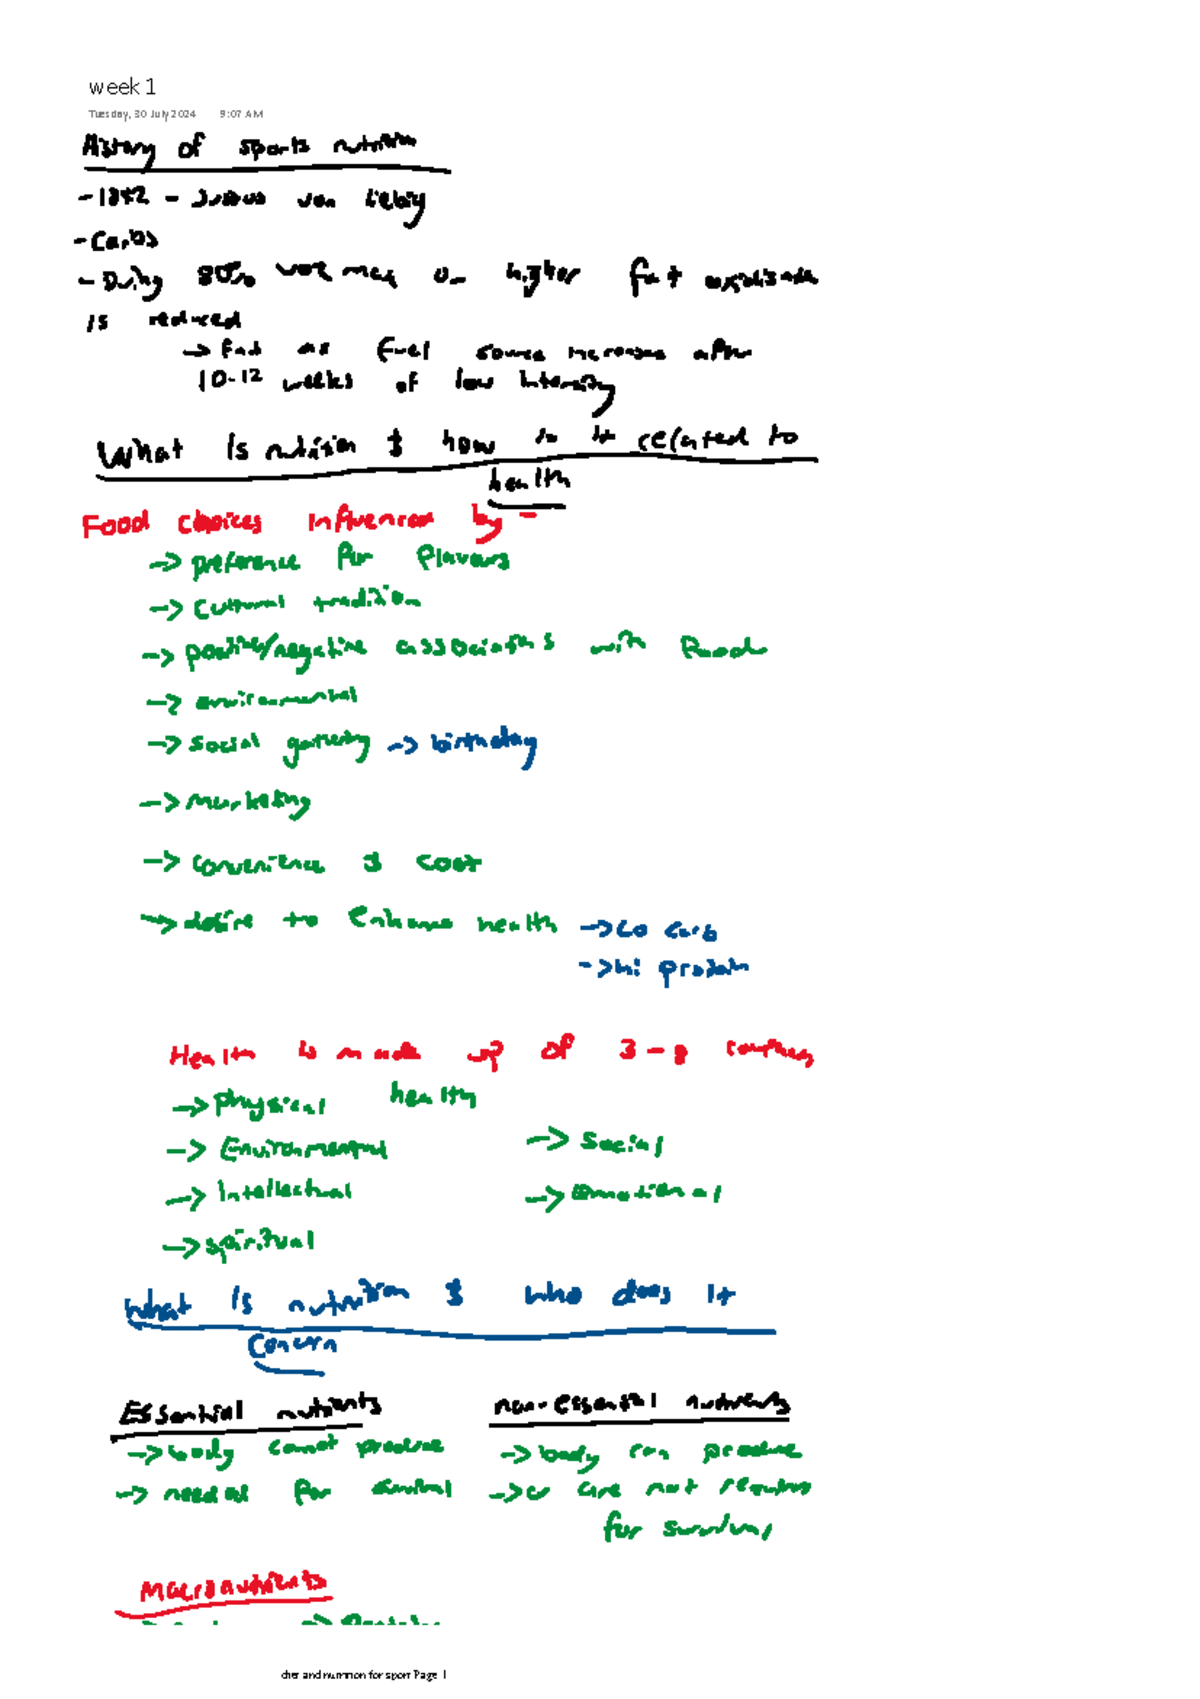 week 1
Tuesday, 30 July 2024 9:07 AM
History of sports nutrition
- 1842 - Justus von Liebig
- Carbs
- During 80% VO2 max or higher fat oxidisation
is reduced
-> Fat as fuel source increases after
10-12 weeks of low intensity
What is nutrition & how is it related to
health
Food choices influenced by -
-> preference for flavours
-> Cultural tradition
-> positive/negative associations with food
-> environmental
-> social gathering -> birthday
-> marketing
-> convenience & cost
-> desire to enhance health -> Lo carb
-> hi protein
Health is made up of 3-8
-> physical health
-> Environmental -> Social
-> Intellectual -> emotional
-> spiritual
What is nutrition & who does it
Concern
Essential nutrients non-essential nutrients
-> body cannot produce -> body can produce
-> needed for survival -> or are not required
for survival
Macronutrients
diet and nutrition for sport Page 1